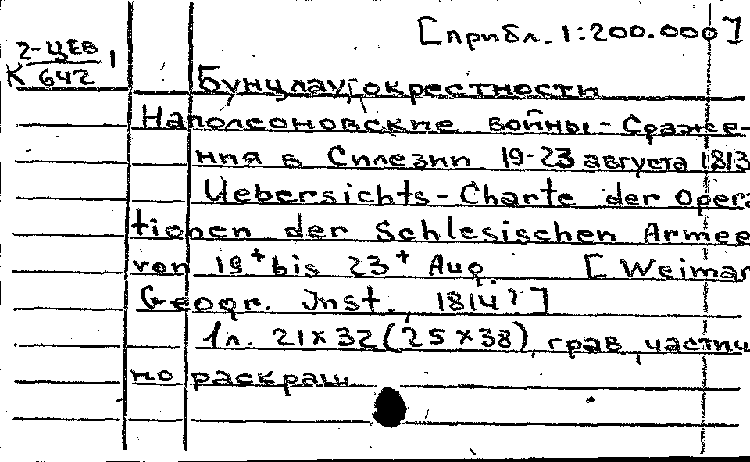 [прибл. 1:200.000]
2-ЦЕВ 1
К 642
Бунцлау, окрестности
Наполеоновские войны - Сраже-
ния в Силезии 19-23 августа 1813
Uebersichts-Charte der Opera
tionen der Schlesischen Armee
von 19+ bis 23+ Aug. [Weimar
Geogr. Inst., 1814?]
1л. 21x32(25x38), грав, частич
но раскраш